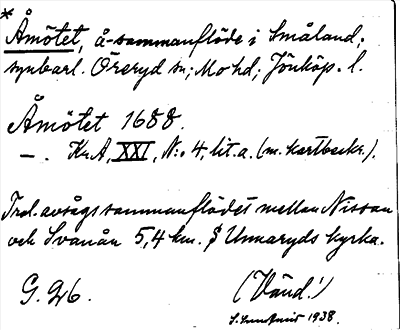 * Åmötet, å-sammanflöde i Småland;
synbarl. Öreryd sn; Mo hd; Jönköp. l.
Åmötet 1688.
—. Kr. A, XXI, N:o 4, lit. a. (m. kartbeskr.).
Trol. avsågs sammanflödet mellan Nissan
och Svanån 5,4 km. S Unnaryds kyrka.
G. 26. (Vänd!)
1938.